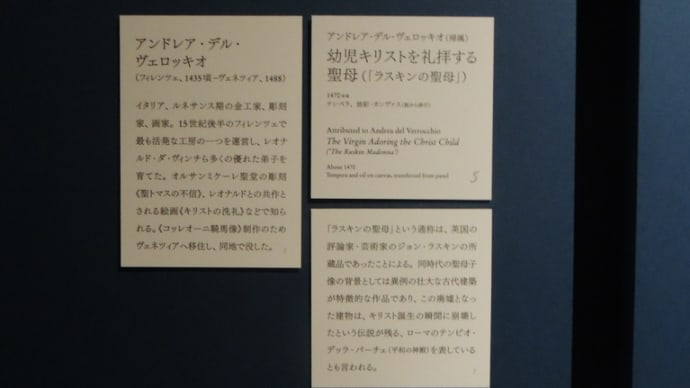 アンドレア・デル・
ヴェロッキオ
(フィレンツェ、1435頃–ヴェネツィア、1488)
イタリア、ルネサンス期の金工家、彫刻
家、画家。15世紀後半のフィレンツェで
最も活発な工房の一つを運営し、レオナ
ルド・ダ・ヴィンチら多くの優れた弟子を
育てた。オルサンミケーレ聖堂の彫刻
《聖トマスの不信》、レオナルドとの共作と
される絵画《キリストの洗礼》などで知ら
れる。《コッレオーニ騎馬像》制作のため
ヴェネツィアへ移住し、同地で没した。
アンドレア・デル・ヴェロッキオ(帰属)
幼児キリストを礼拝する
聖母(「ラスキンの聖母」)
1470年頃
テンペラ、油彩・カンヴァス(板から移行)
Attributed to Andrea del Verrocchio
The Virgin Adoring the Christ Child
("The Ruskin Madonna")
About 1470
Tempera and oil on canvas, transferred from panel
5
「ラスキンの聖母」という通称は、英国の
評論家・芸術家のジョン・ラスキンの所
蔵品であったことによる。同時代の聖母子
像の背景としては異例の壮大な古代建築
が特徴的な作品であり、この廃墟となっ
た建物は、キリスト誕生の瞬間に崩壊し
たという伝説が残る、ローマのテンピオ・
デッラ・パーチェ(平和の神殿)を表している
とも言われる。